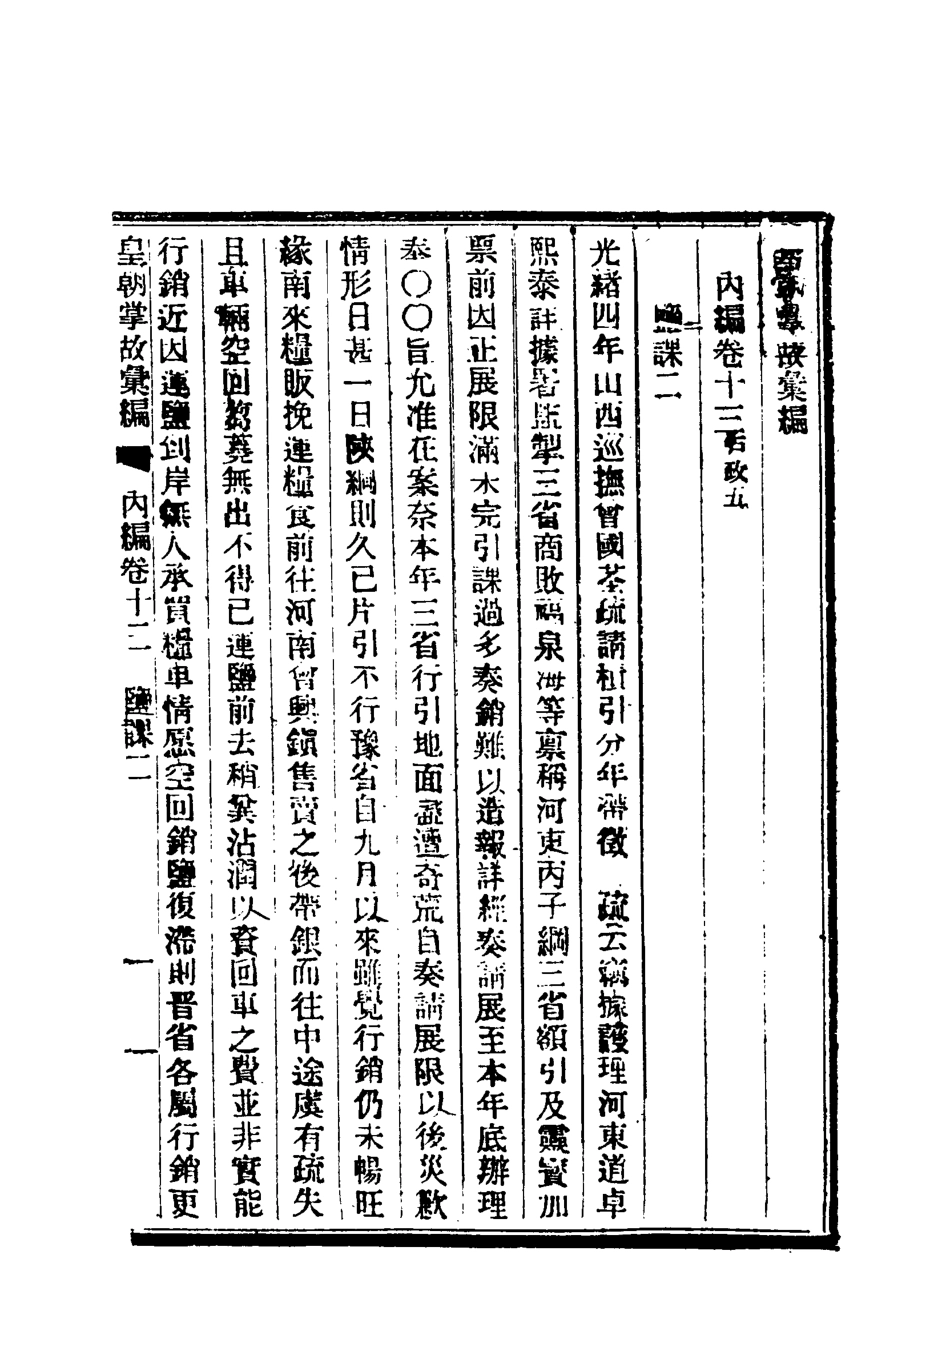 皇朝掌故彙編
內編卷十三 后政五
鹽課二
光緒四年山西巡撫曾國荃疏請積引分年帶徵 疏云竊據護理河東道卓
熙泰詳據署監掣三省商敗禑泉海等稟稱河東丙子綱三省額引及靈寶加
票前因正展限滿未完引課過多奏銷難以造報詳經奏請展至本年底辦理
奉〇〇旨允准在案奈本年三省行引地面盡遭奇荒自奏請展限以後災歉
情形日甚一日陝綱則久已片引不行豫省自九月以來雖覺行銷仍未暢旺
緣南來糧販挽運糧食前往河南會興鎮售賣之後帶銀而往中途虞有疏失
且車輛空回芻蕘無出不得已運鹽前去稍冀沾潤以資回車之費並非實能
行銷近因運鹽到岸無人承買糧車情愿空回銷鹽復滯則晋省各屬行銷更
皇朝掌故彙編 內編卷十三 鹽課二 一